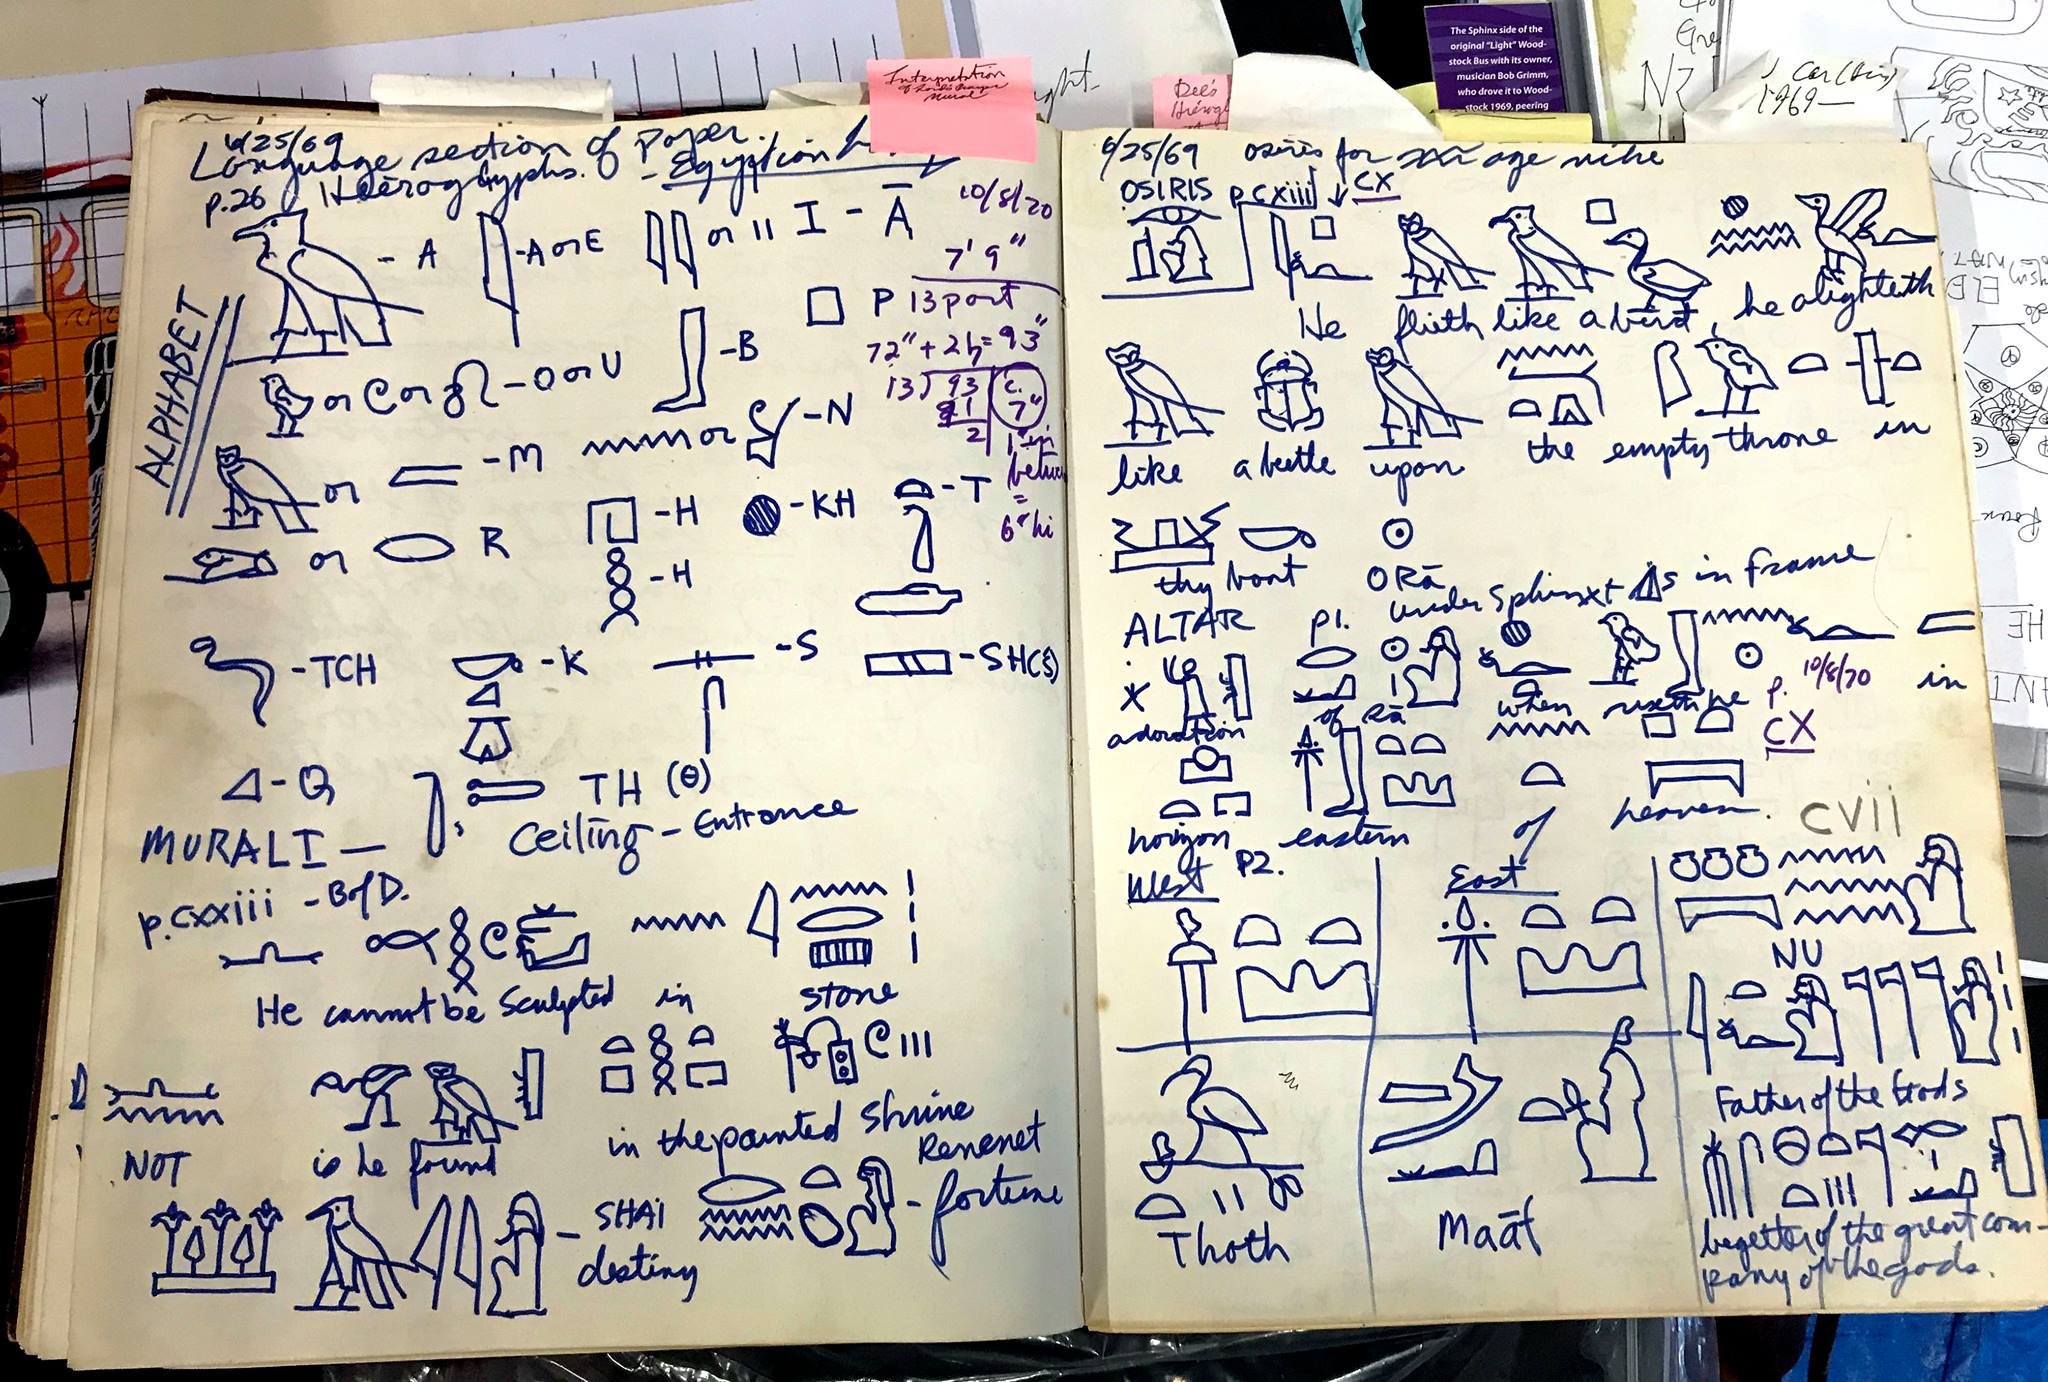 Interpretation
of
Mural
The Sphinx side of the
original "Light" Wood-
stock Bus with its owner,
musician Bob Grimm,
who drove it to Wood-
stock 1969, peering
1969—
6/25/69
Language section of paper.
p.26 Hieroglyphs. - Egyptian
ALPHABET
- A
- A or E
or II I - Ā
10/8/20
7' 9"
P
13 part
or C or - O or U
- B
72" + 21 = 93"
13) 93
91
2
C. 7"
or - M
or - N
or R
- H
- KH
- T
6" hi
- H
- TCH
- K
- S
- SH(Š)
- Q
TH (Θ)
MURAL I — Ceiling - Entrance
p. cxxiii - B of D.
He cannot be sculpted in stone
NOT is he found in the painted shrine
- SHAI
destiny
Renenet
- fortune
6/25/69 Osiris for age niche
OSIRIS p. cxiii ↓ CX
He flieth like a bird, he alighteth
like a beetle upon the empty throne in
thy boat O Rā
ALTAR p1. under Sphinx + Δs in frame
adoration of Rā when riseth he p. 10/8/20 in
CX
horizon eastern of heaven.
CVII
West P2.
East
NU
Father of the Gods
Thoth
Maāt
begetter of the great com-
pany of the gods.